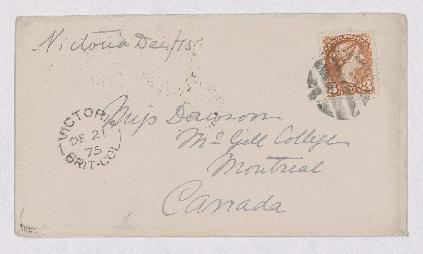 Victoria Dec/75
VICTORIA
DE 21
75
BRIT-COL
Miss Dawson
McGill College
Montreal
Canada